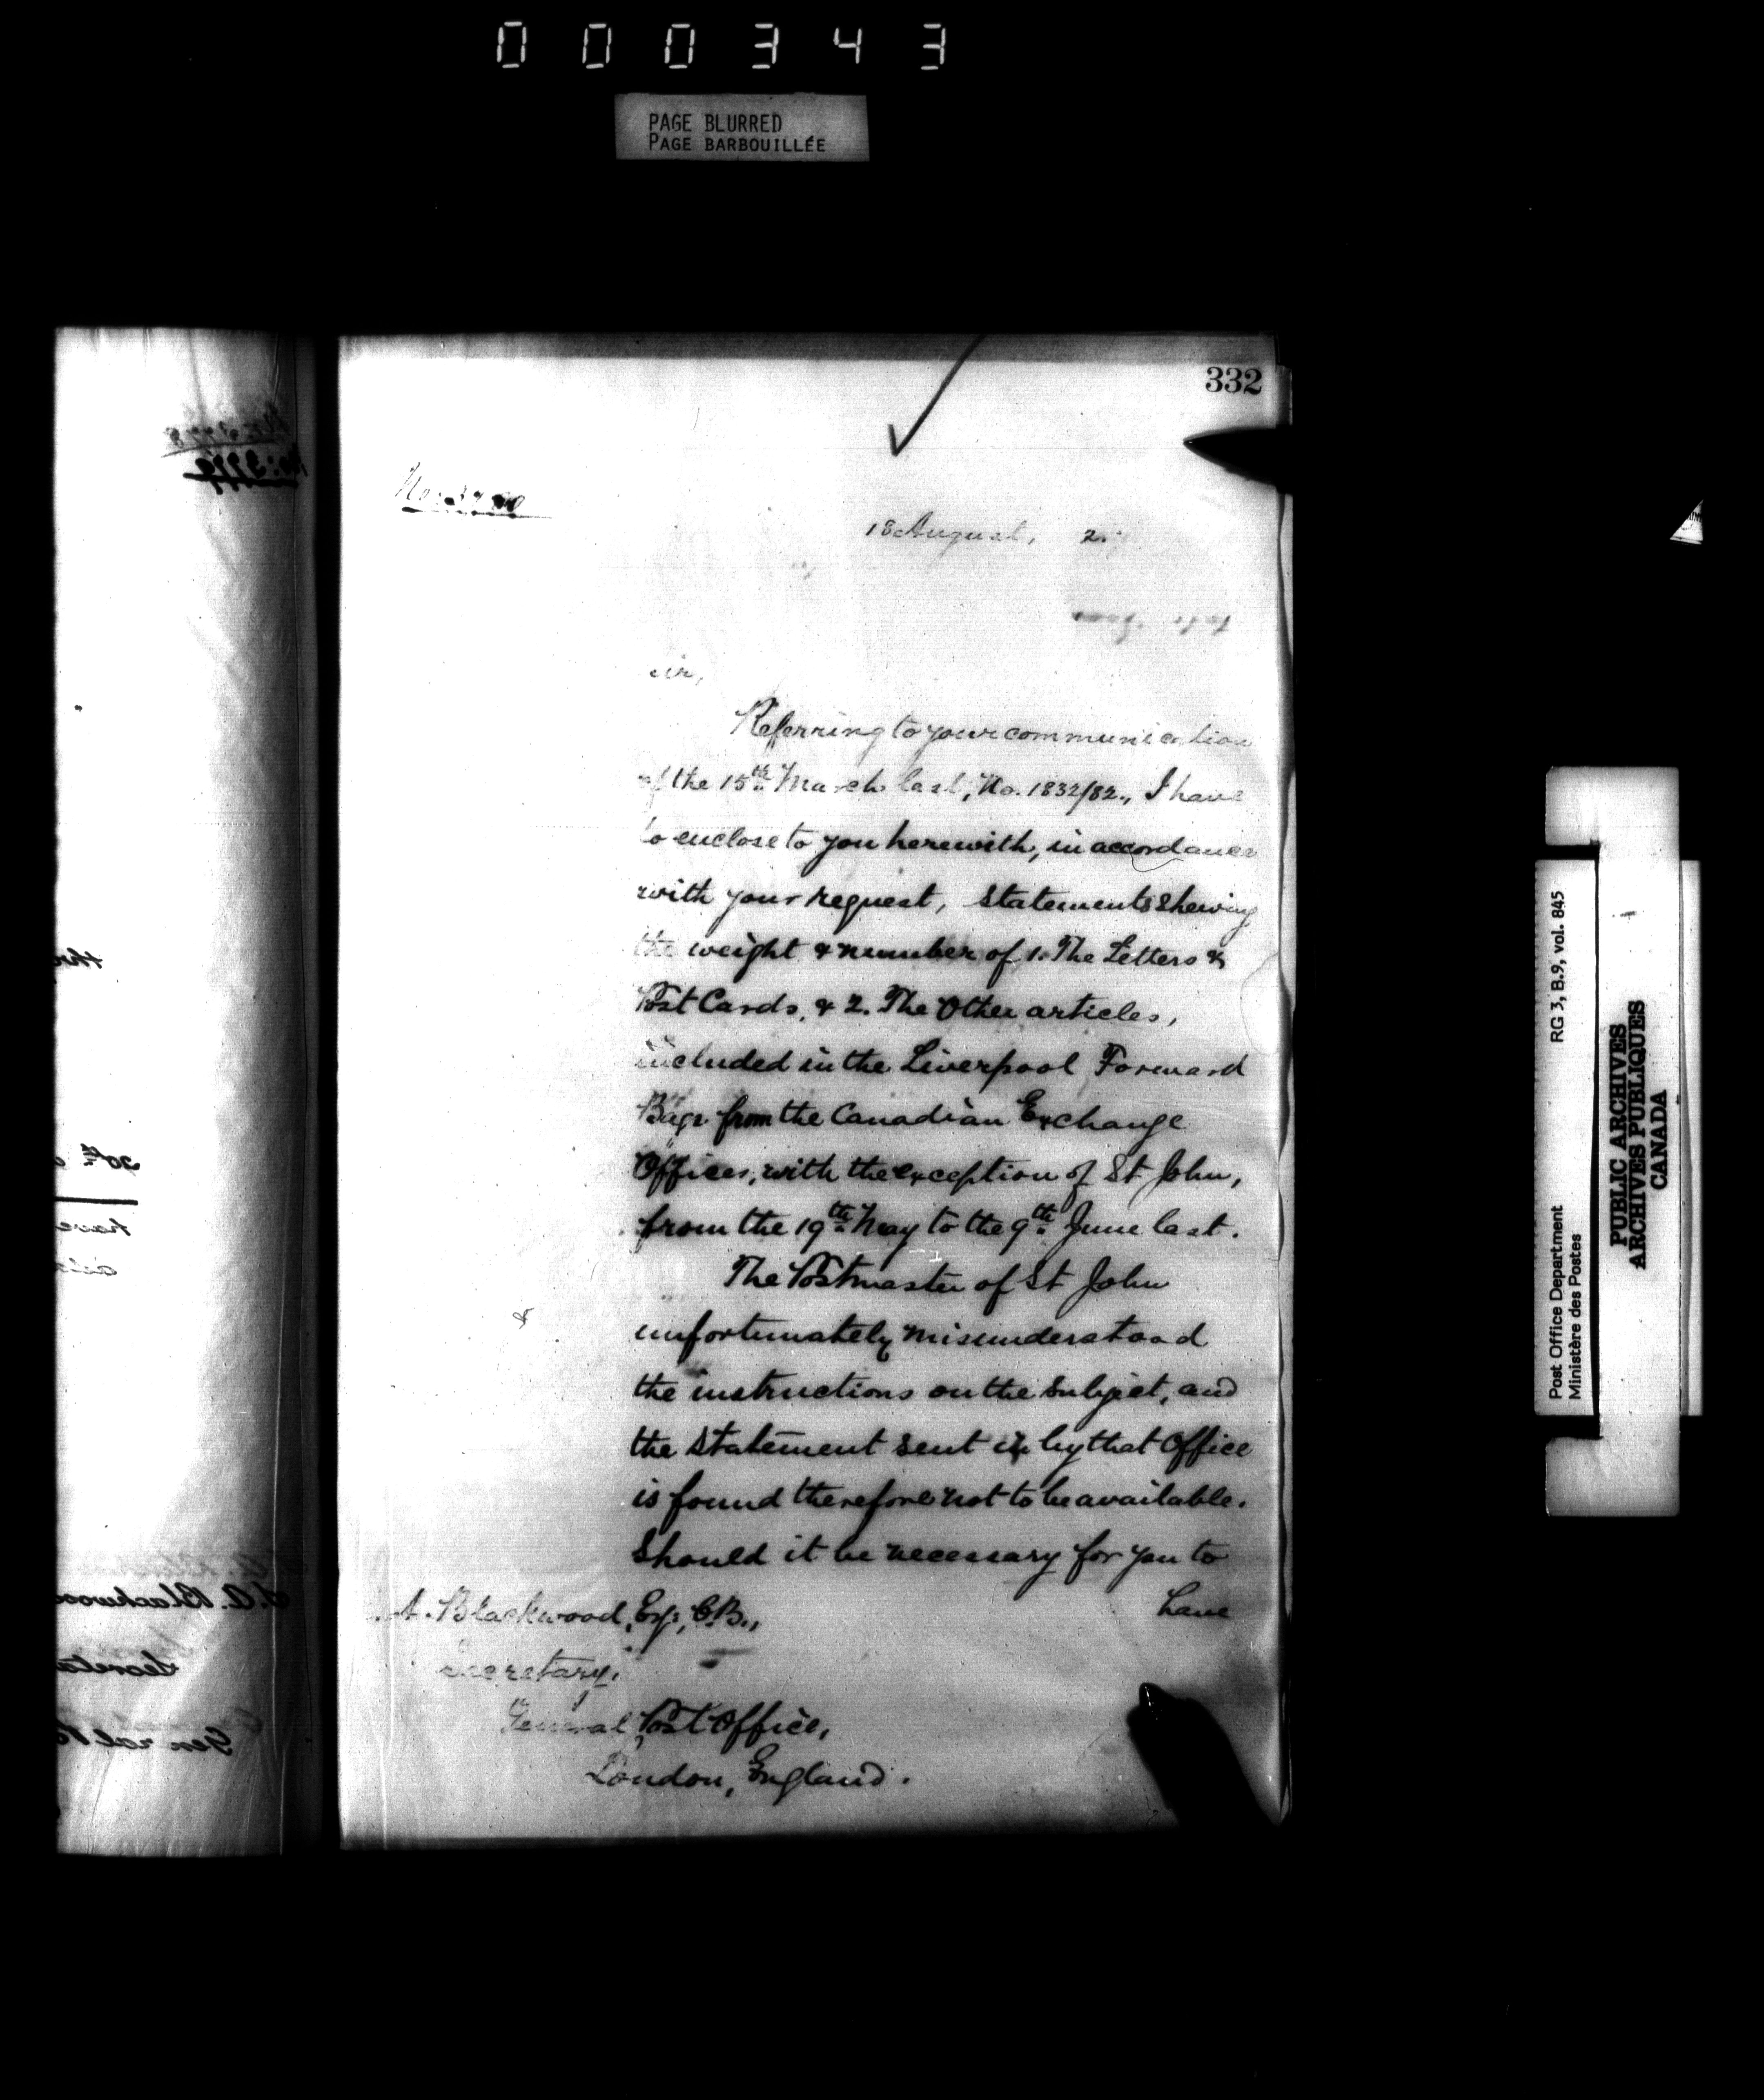 000343
PAGE BLURRED
PAGE BARBOUILLÉE
332
18 August, 2.
Sir,
Referring to your communication
of the 15th March last, No. 1832/82., I have
to enclose to you herewith, in accordance
with your request, statements shewing
the weight & number of 1. The Letters &
Post Cards, & 2. The Other articles,
included in the Liverpool Forward
Bags from the Canadian Exchange
Offices, with the exception of St John,
from the 19th May to the 9th June last.
The Postmaster of St John
unfortunately misunderstood
the instructions on the subject, and
the statement sent in by that Office
is found therefore not to be available.
Should it be necessary for you to
have
A. Blackwood, Esq., C.B.,
Secretary,
General Post Office,
London, England.
RG 3, B.9, vol. 845
Post Office Department
Ministère des Postes
PUBLIC ARCHIVES
ARCHIVES PUBLIQUES
CANADA